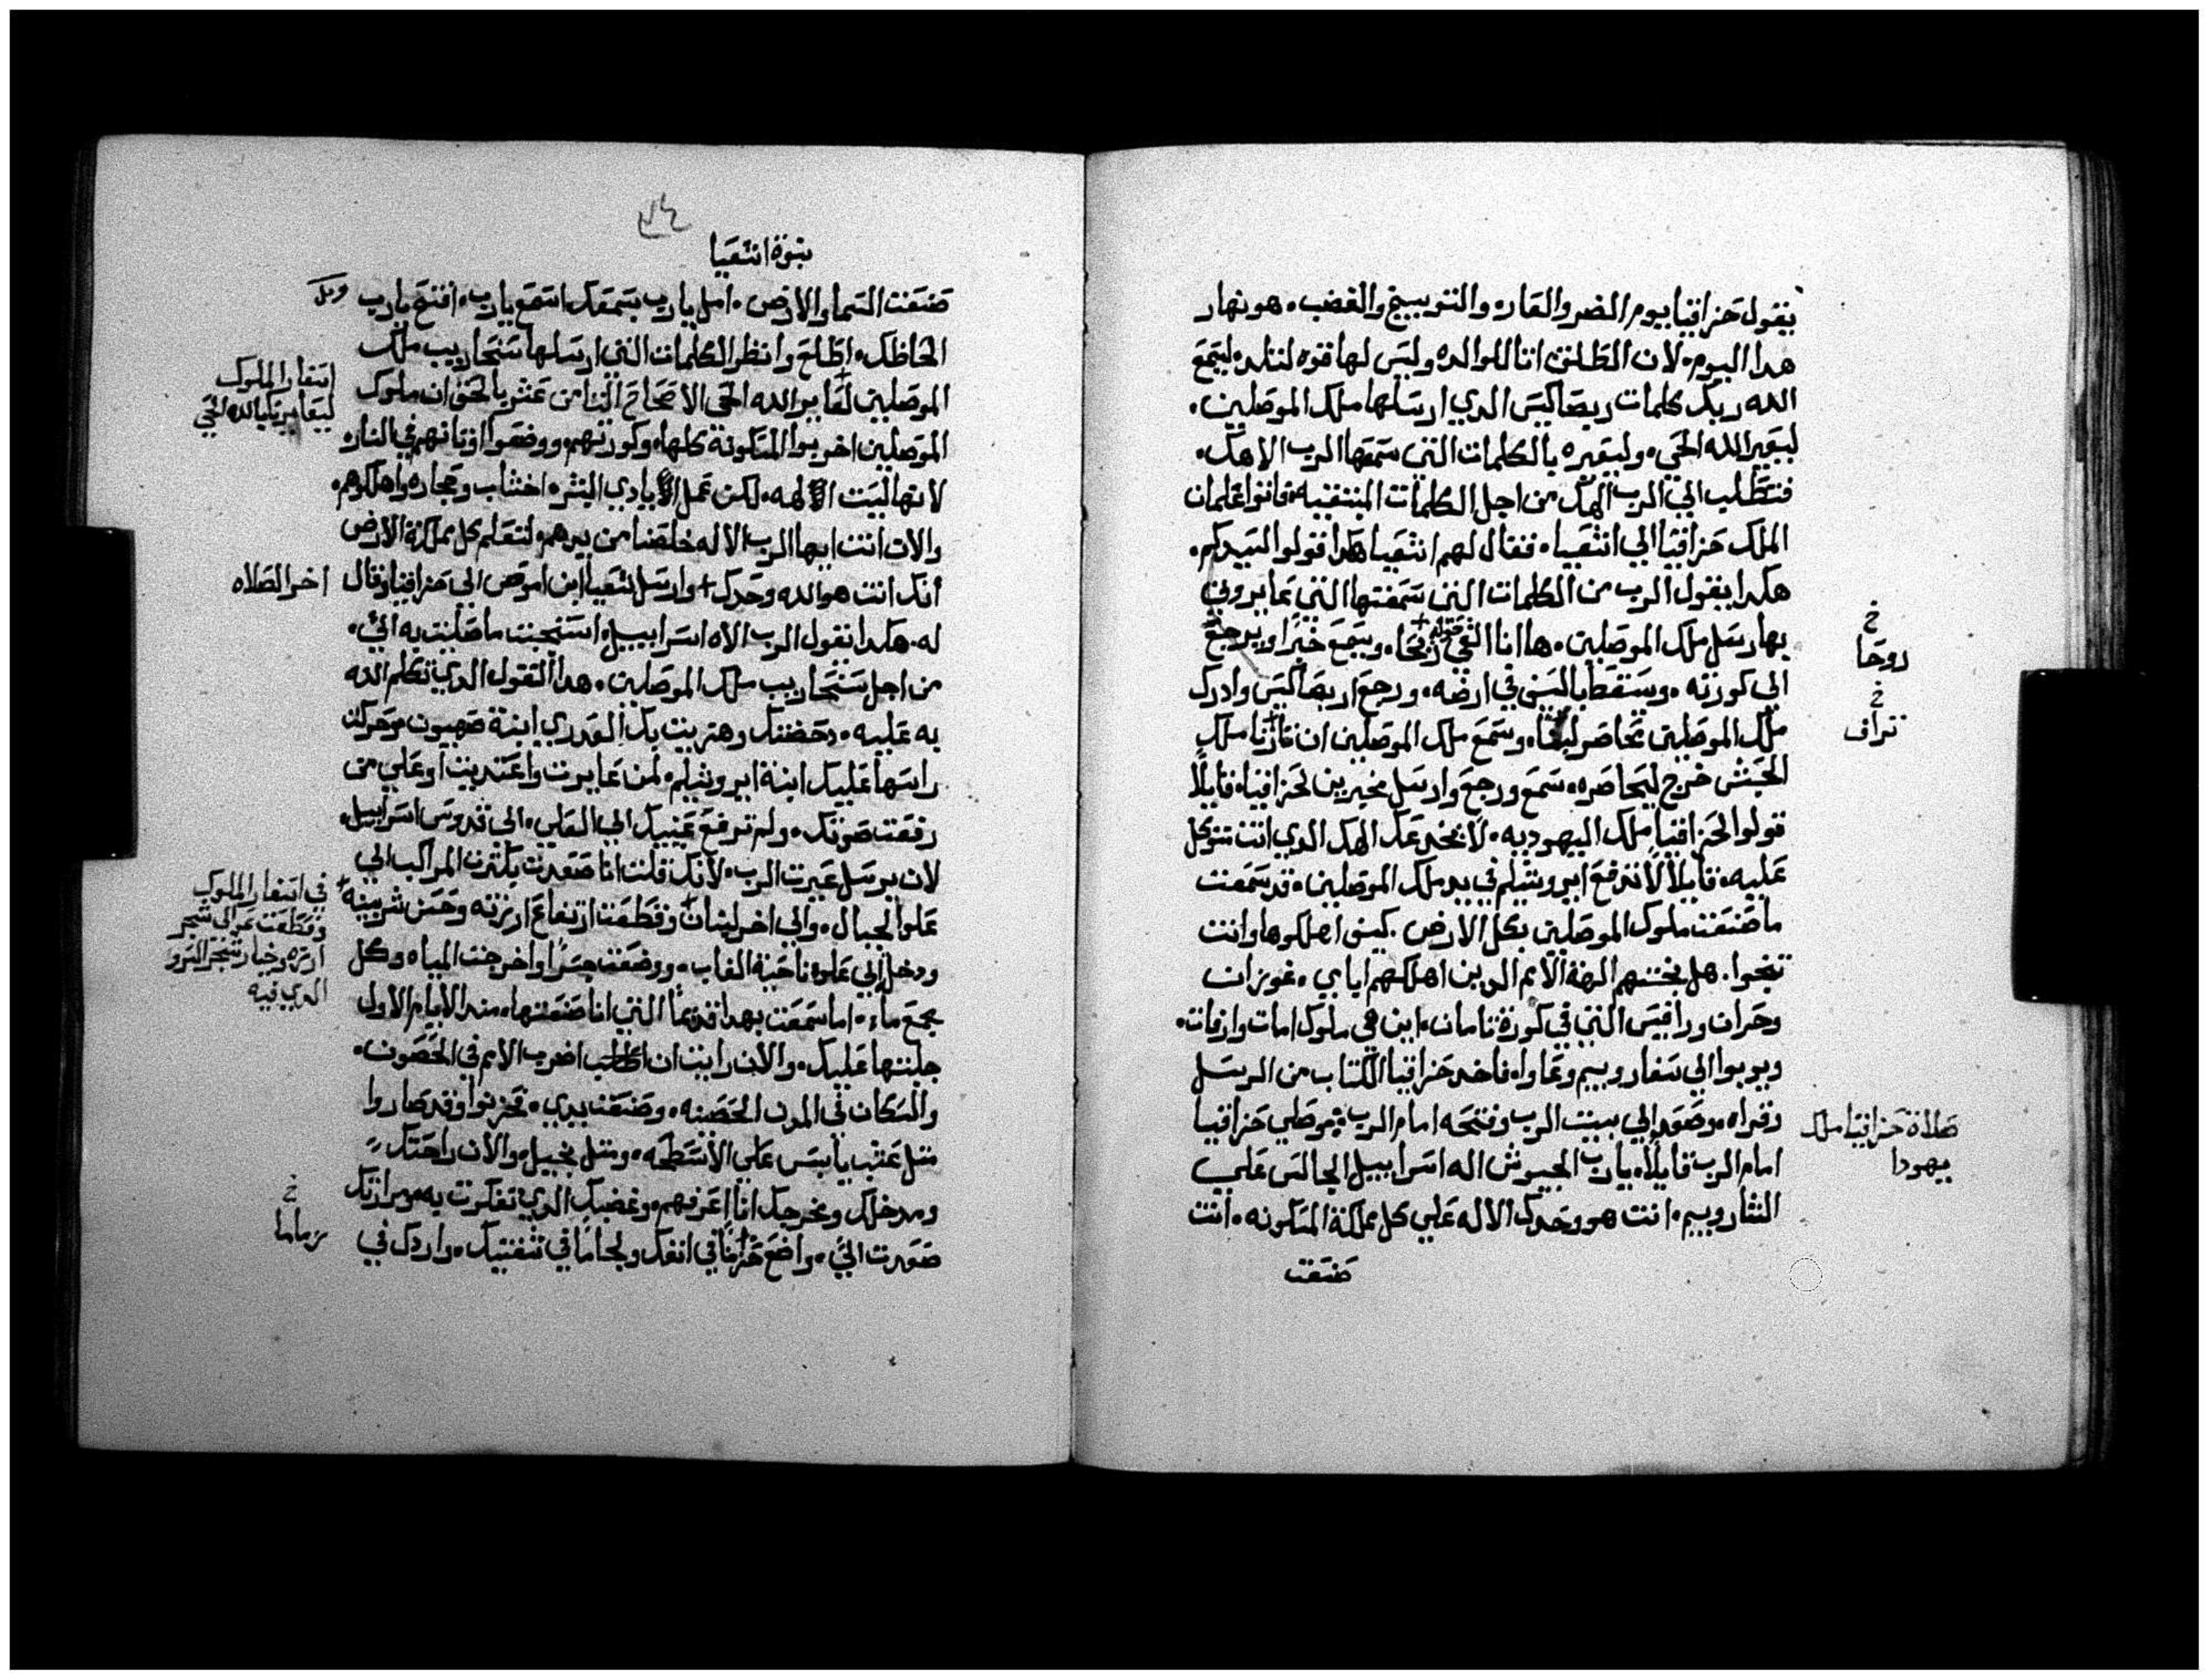 يقول حزاقيا يوم الضر والعار والتوبيخ والغضب هو نهار
هدا اليوم لان الطلق اتا للوالده وليس لها قوه لتلد ليسمع
الله ربك كلمات ربصاكيس الدي ارسلها ملك الموصليين
ليعير الله الحي وليعيره بالكلمات التي سمعها الرب الاهك
فتطلب الي الرب الهك من اجل الكلمات المبتقيه فاتوا غلمان
الملك حزاقيا الي اشعيا فقال لهم اشعيا هكدا قولوا لسيدكم
هكدا يقول الرب من الكلمات التي سمعتها التي عايروني
بها رسل ملك الموصليين ها انا القي فيه ريحا ويسمع خبرا ويرجع
الي كورته وسقط بالسيف في ارضه ورجع اربصاكيس وادرك
ملك الموصليين يحاصر لبنا وسمع ملك الموصليين ان ملك
الحبش خرج ليحاصره سمع ورجع وارسل مخبرين لحزاقيا قايلا
قولوا لحزاقيا ملك اليهوديه لا يخدعك الهك الدي انت تتوكل
عليه قايلا لا تدفع ايروشليم في يد ملك الموصليين قد سمعت
ما صنعت ملوك الموصليين بكل الارض كيف اهلكوها وانت
تنجوا هل نجتهم الهة الامم الدين اهلكهم اباي غوزان
وحران ورافيس التي في كورة تامان اين هي ملوك امات وارفات
ويريوا الي سفارويم وعاوا فاخد حزاقيا الكتاب من الرسل
وقراه وصعد الي بيت الرب وفتحه امام الرب وصلي حزاقيا
امام الرب قايلا يارب الجيوش اله اسراييل الجالس علي
الشارويم انت هو وحدك الاله علي كل مملكة المسكونه انت
صنعت
خ
روحا
خ
تراف
صلاة حزاقيا ملك
يهودا
نبوة اشعيا
صنعت السما والارض امل يارب بسمعك استمع يارب افتح يارب
الحاظك اطلع وانظر الكلمات التي ارسلها سنحاريب ملك
الموصليين لعاير الله الحي الاصحاح التامن عشر بالحق ان ملوك
الموصليين اخربوا المسكونة كلها وكورتهم ووضعوا اوتانهم في النار
لانها ليست الهه لكن عمل ايادي البشر اخشاب وحجاره واهلكوهم
والان انت ايها الرب الاله خلصنا من يدهم لتعلم كل مملكة الارض
انك انت هو الله وحدك وارسل اشعيا ابن اموص الي حزاقيا وقال
له هكدا يقول الرب الاه اسراييل استجبت ما صليت به الي
من اجل سنحاريب ملك الموصليين هدا القول الدي تكلم الله
به عليه دحضتك وهزيت بك العدري ابنة صهيون وحركت
راسها عليك ابنة ايروشليم لمن عايرت واغتديت او علي من
رفعت صوتك ولم ترفع عينيك الي العلي الي قدوس اسراييل
لان برسل عيرت الرب لانك قلت انا صعدت بكترت المراكب الي
علو الجبال والي اخر لبنان وقطعت ارتفاع ارزته وحسن شربينه
ودخل الي علوة ناحية الغاب ووضعت جسرا واخرجت المياه وكل
مجمع ماء اما سمعت بهدا قديما التي انا صنعتها مند الايام الاول
جلبتها عليك والان رايت ان اضرب الامم في الحصون
والسكان في المدن الحصينه وضعفت يدي تحزنوا وقد صاروا
متل عشب يابس علي الاسطحه ومتل نجيل والان راحتك
ومدخلك ومخرجك انا اعرفهم وغضبك الدي تفكرت به ومرارتك
صعدت الي واضع خزاما في انفك ولجاما في شفتيك واردك في
وكل
اسفار الملوك
ليعاير بها الله الحي
اخر الصلاه
في اسفار الملوك
وقطعت عوالي شجر
ارزه وخيار شجر السرو
الدي فيه
خ
زماما